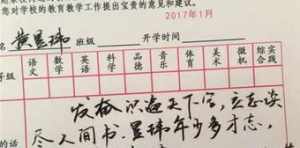 您对学校的教育教学工作提出宝贵的意见和建议。
2017年1月
名 黄昱玮 班级 开学时间
语文 数学 英语 科学 品德 音乐 体育 美术 微机 综合实践
等级
发奋识遍天下字，立志读
尽人间书。昱玮年少多才志，
的话